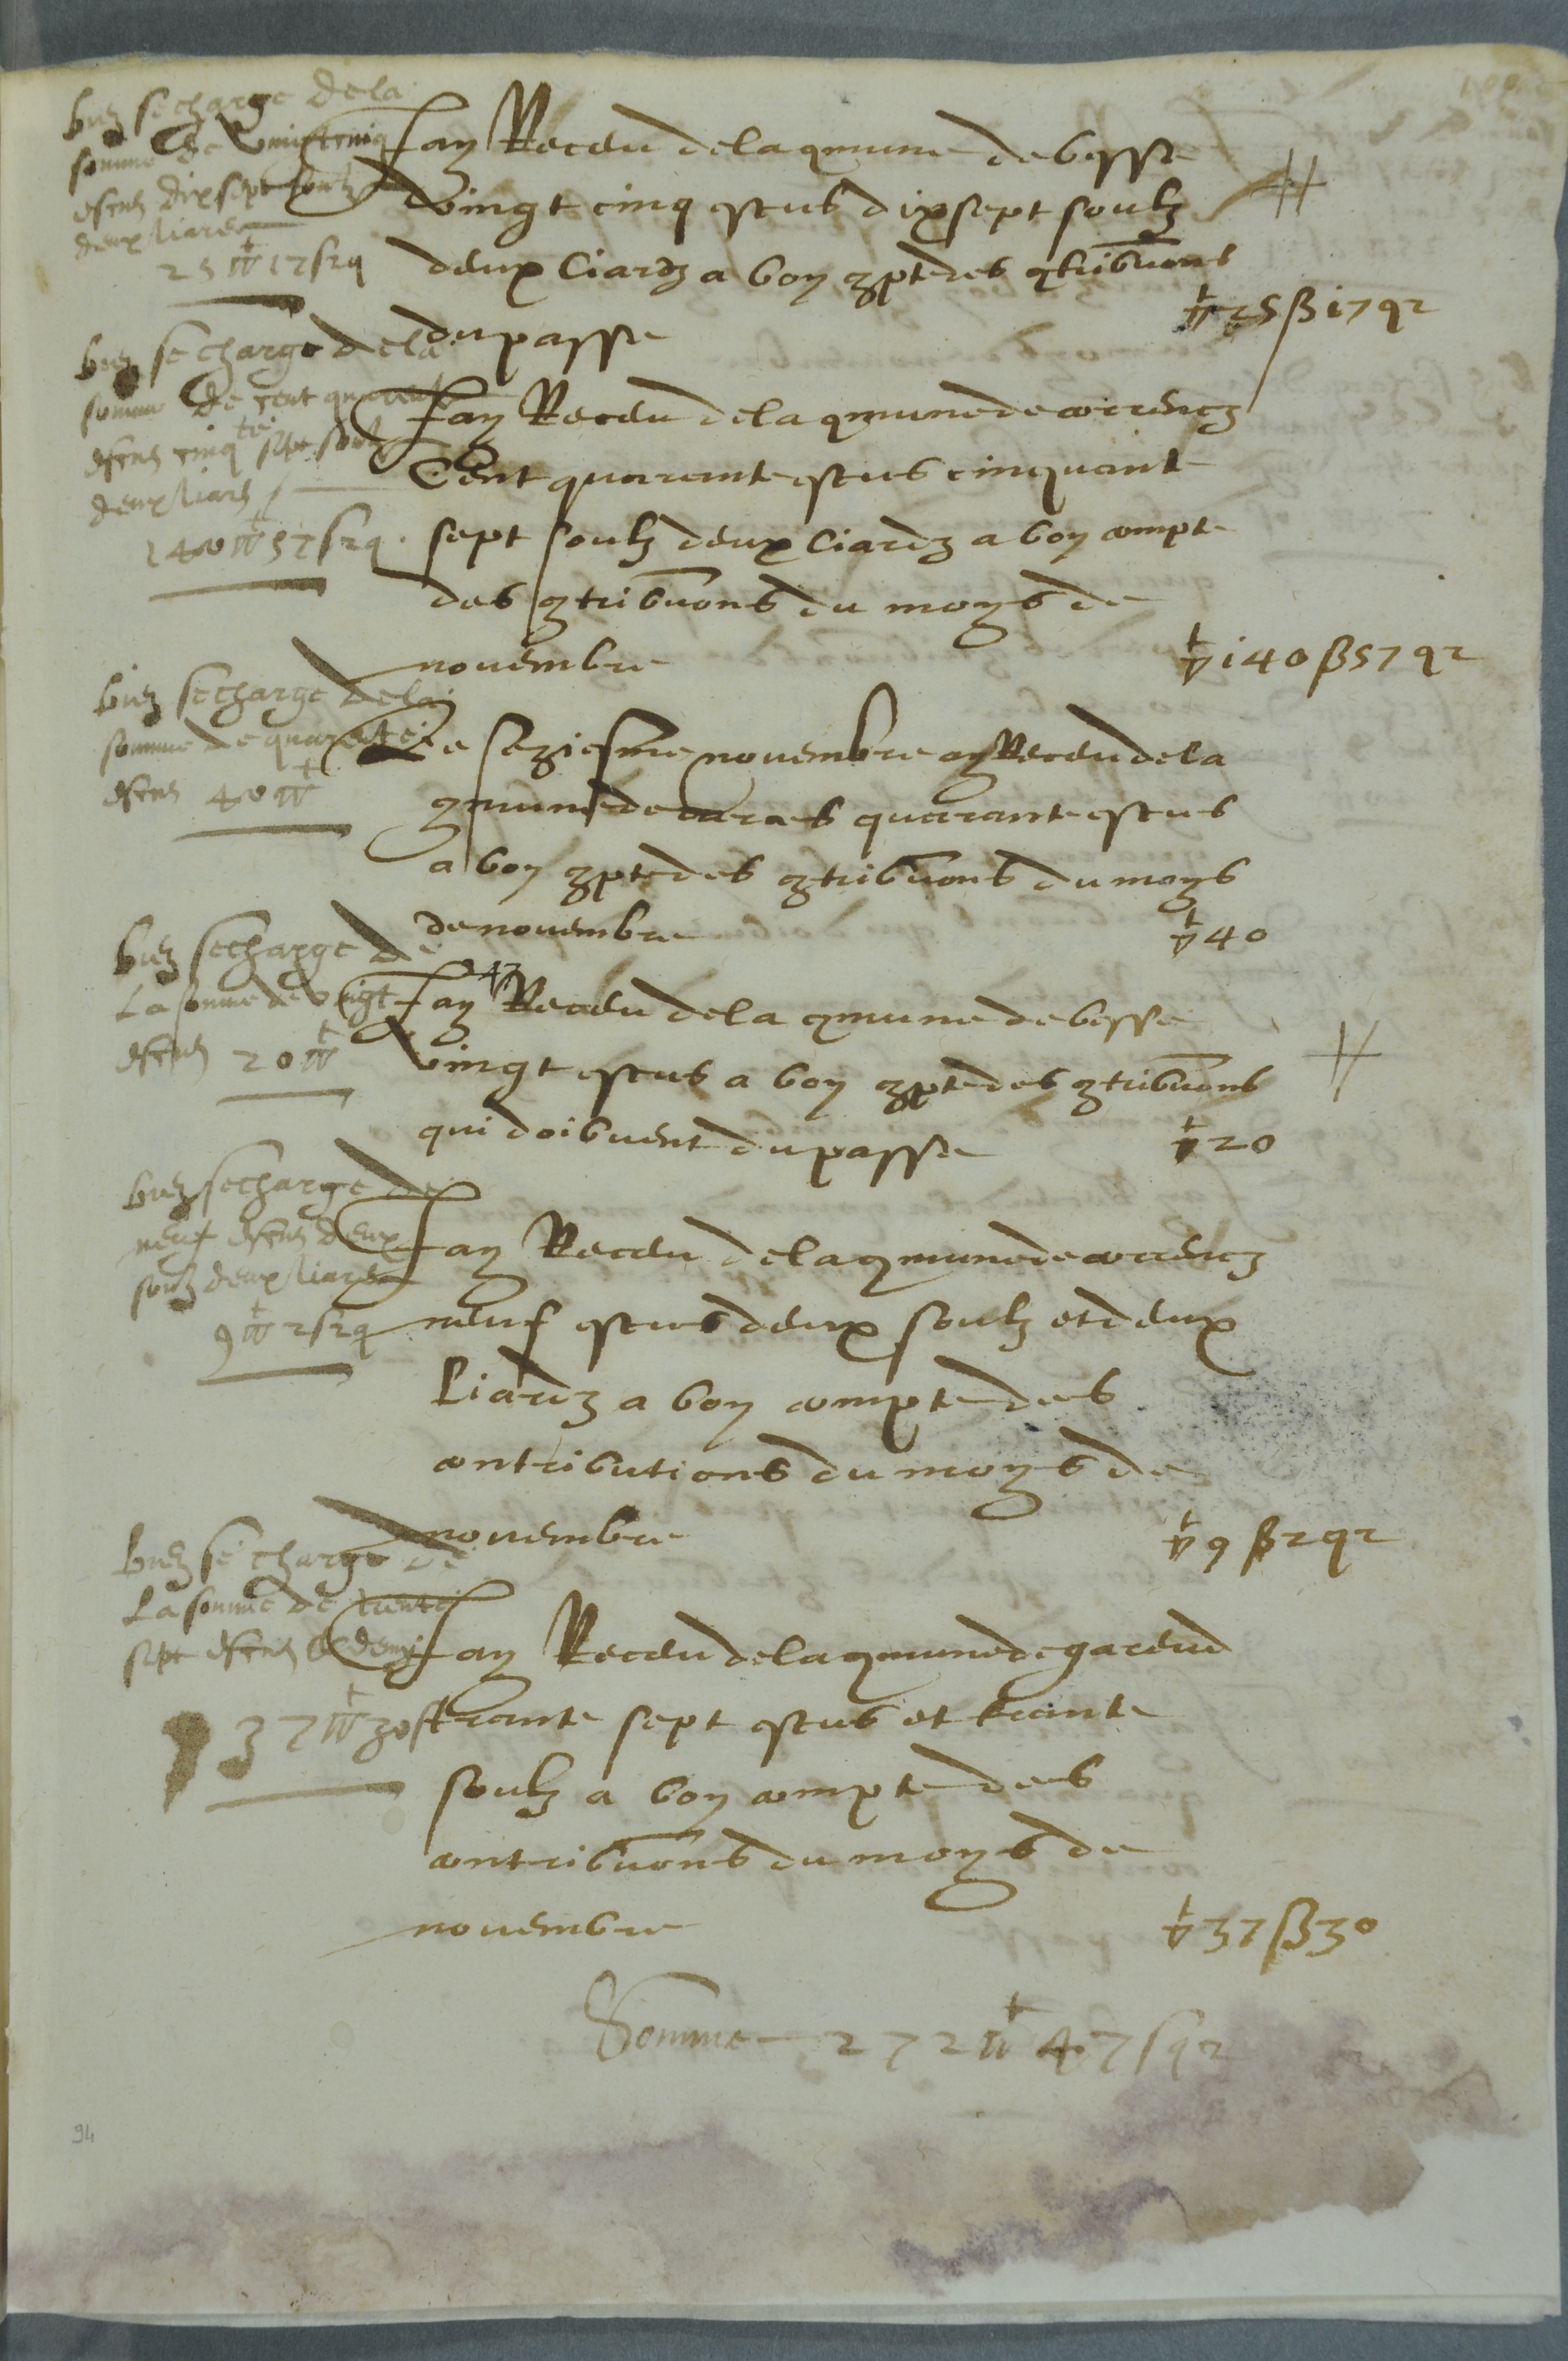 bien se charge de la
somme de vint cinq
escus dix sept soulz
deux liars
25 𝛁 17 s 2 q
Jay Receu de la qmune de besse
vingt cinq escus dix sept soulz
deux liardz a bon qpte des qtribuons
du passe
𝛁 25 β i7 q 2
bien se charge de la
somme de cent quarente
escus cinqte sept soulz
deux liars
140 𝛁 57 s 2 q
Jay Receu de la qmune de correncz
Cent quarante escus cinquante
sept soulz deux liardz a bon compte
des qtribuons du moys de
novembre
𝛁 i40 β 57 q 2
bien se charge de la
somme de quarente
escus 40 𝛁
Le seziesme novembre ay Receu de la
qmune de quarante escus
a bon qpte des qtribuons du moys
de novembre
𝛁 40
bien se charge de
La somme de vingt
escus 20 𝛁
Jay Receu de la qmune de besse
vingt escus a bon qpte des qtribuons
qui doibuent du passe
𝛁 20
bien se charge de
neuf escus deux
soulz deux liars
9 𝛁 2 s 2 q
Jay Receu de la qmune de correncz
neuf escus deux soulz et deux
Liardz a bon compte des
contributions du moys de
novembre
𝛁 9 β 2 q 2
bien se charge de
La somme de trente
sept escus & demy
37 𝛁 30 s
Jay Receu de la qmune de
trante sept escus et trante
soulz a bon compte des
contribuons du moys de
novembre
𝛁 37 β 30
Somme 272 𝛁 47 s q 2
94